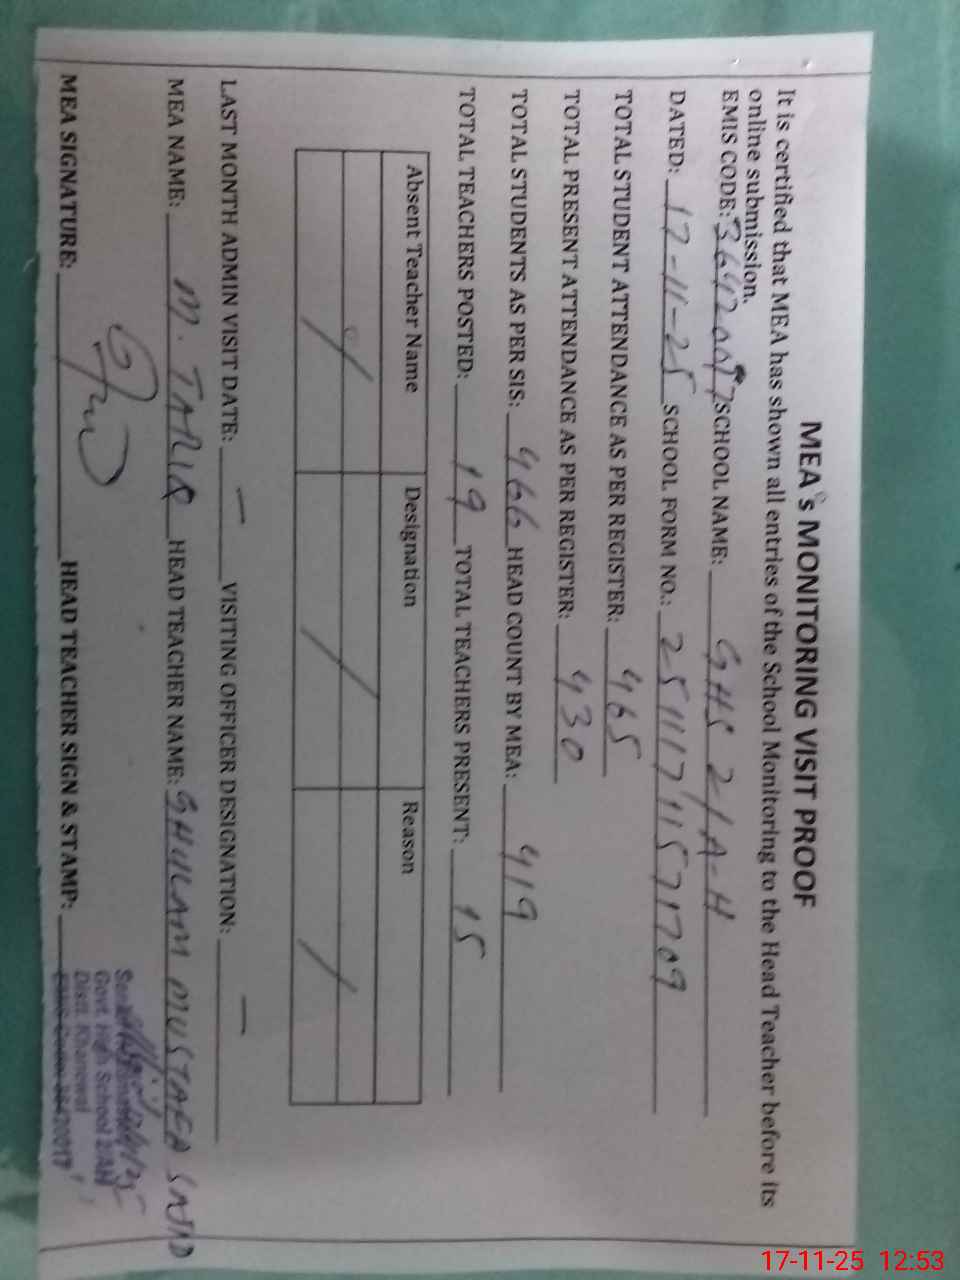 MEA's MONITORING VISIT PROOF
It is certified that MEA has shown all entries of the School Monitoring to the Head Teacher before its
online submission.
EMIS CODE: SCHOOL NAME: GHS 21A-H
DATED: 17-11-25 SCHOOL FORM NO.: 2511171571709
TOTAL STUDENT ATTENDANCE AS PER REGISTER: 465
TOTAL PRESENT ATTENDANCE AS PER REGISTER: 430
TOTAL STUDENTS AS PER SIS: 466 HEAD COUNT BY MEA: 419
TOTAL TEACHERS POSTED: 19 TOTAL TEACHERS PRESENT: 15
Absent Teacher Name Designation Reason
LAST MONTH ADMIN VISIT DATE: — VISITING OFFICER DESIGNATION: —
MEA NAME: M. TARIQ HEAD TEACHER NAME: GHULAM MUSTAFA SAJID
MEA SIGNATURE: HEAD TEACHER SIGN & STAMP:
Govt. High School 21/AH
Distt. Khanewal
17-11-25 12:53